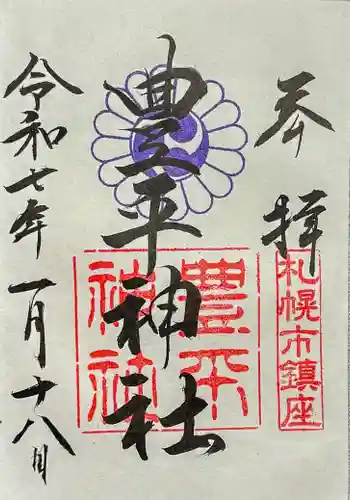 奉拝
札幌市鎮座
豊平神社
豊平
神社
令和七年一月十八日